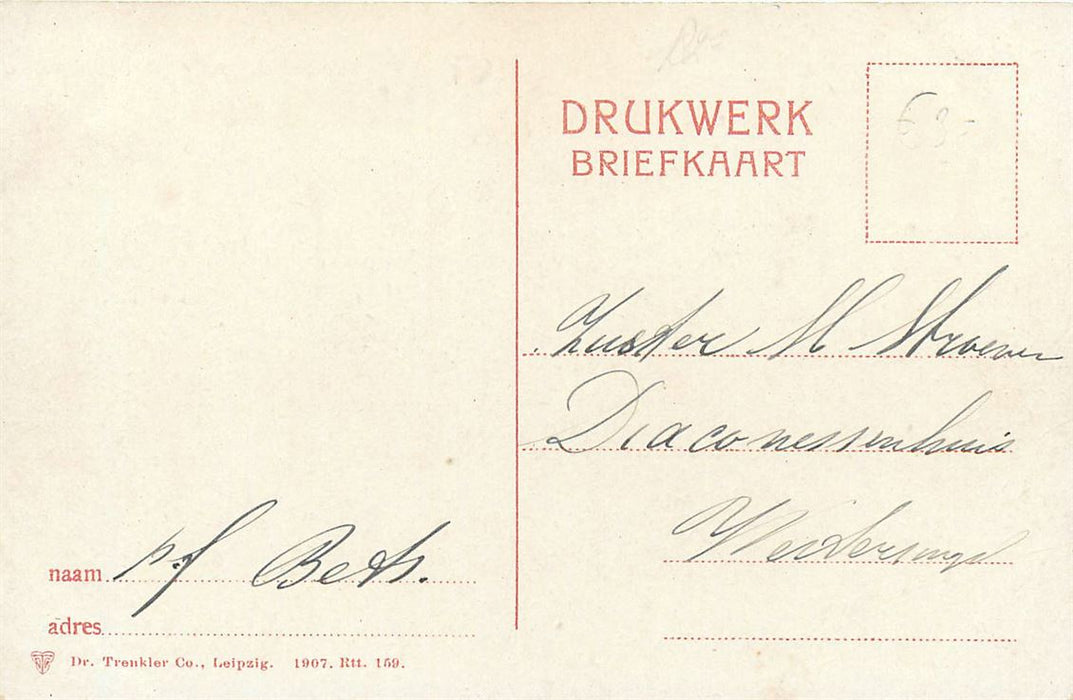 DRUKWERK
BRIEFKAART
63-
Zuster M Stroever
Diaconessenhuis
Westersingel
naam p.f Beth.
adres
Dr. Trenkler Co., Leipzig. 1907. Rtt. 159.